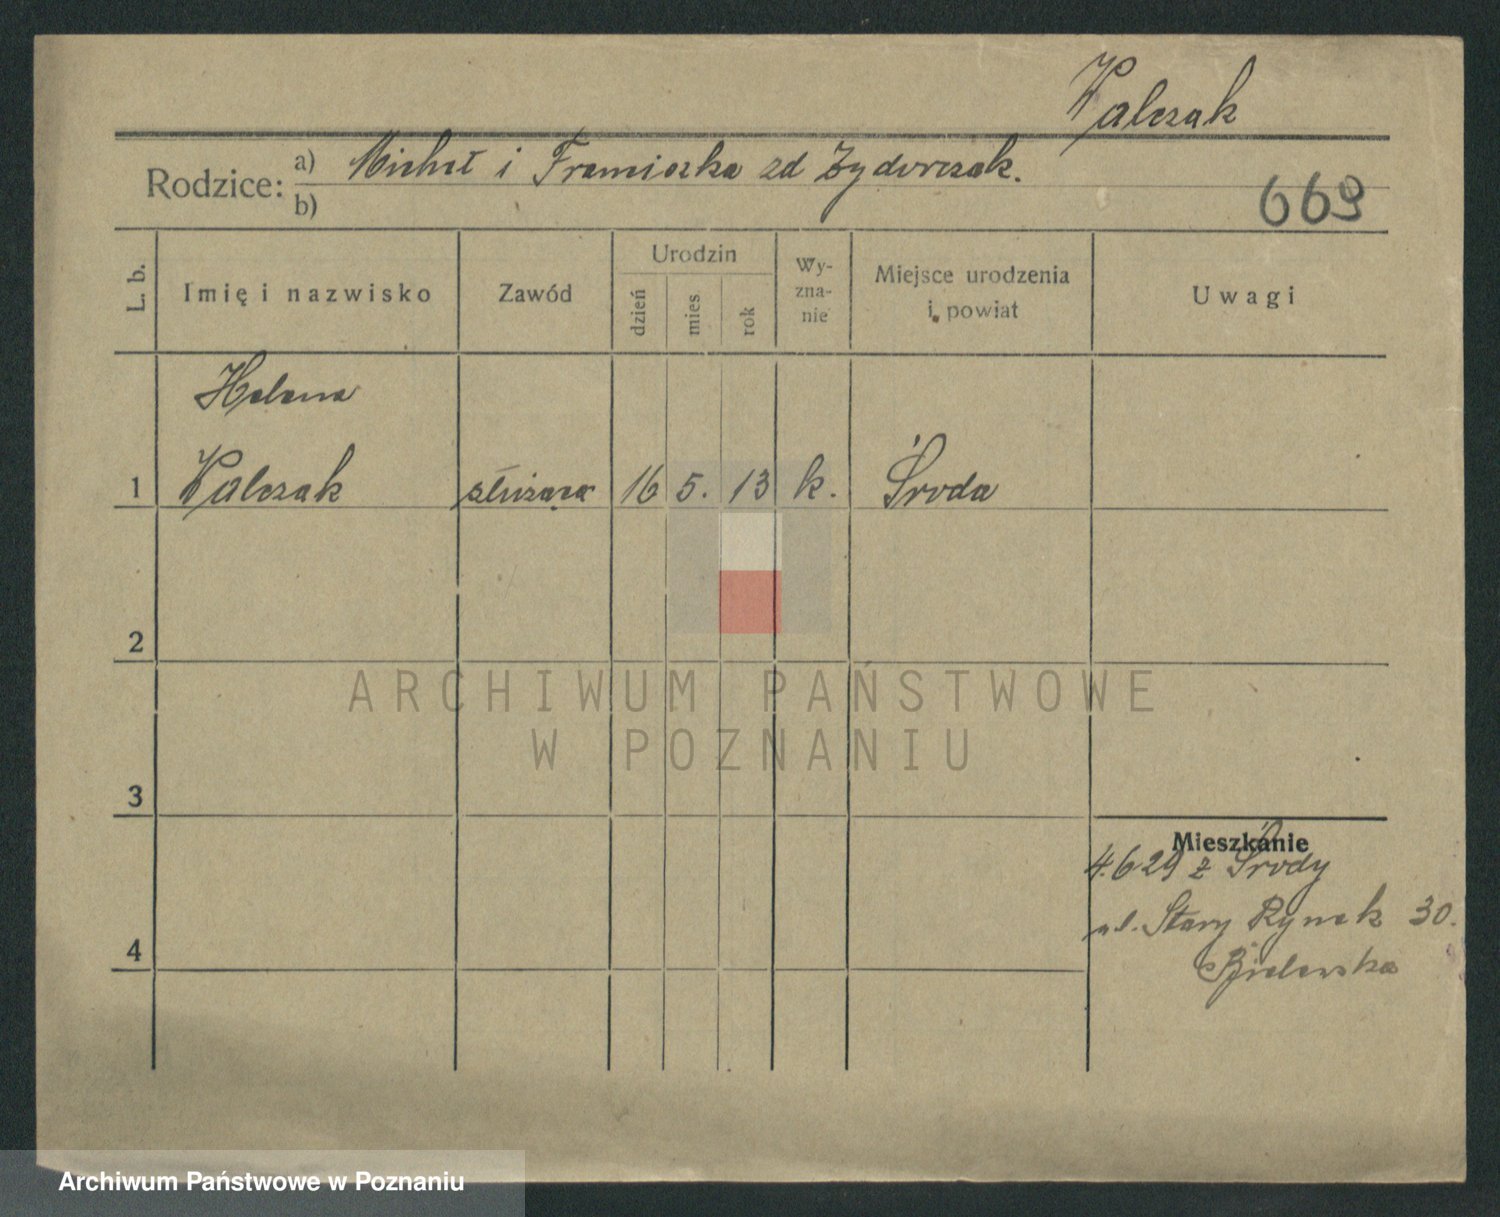 Walczak
Rodzice: a) Michał i Franciszka zd Zydorczak.
b)
669
L. b.
Imię i nazwisko
Zawód
Urodzin
dzień
mies
rok
Wy-
zna-
nie
Miejsce urodzenia
i powiat
Uwagi
Helena
1 Walczak służąca 16 5. 13 k. Środa
2
ARCHIWUM PAŃSTWOWE
W POZNANIU
3
Mieszkanie
4.6 29 z Środy
ul. Stary Rynek 30.
Bielewska
4
Archiwum Państwowe w Poznaniu